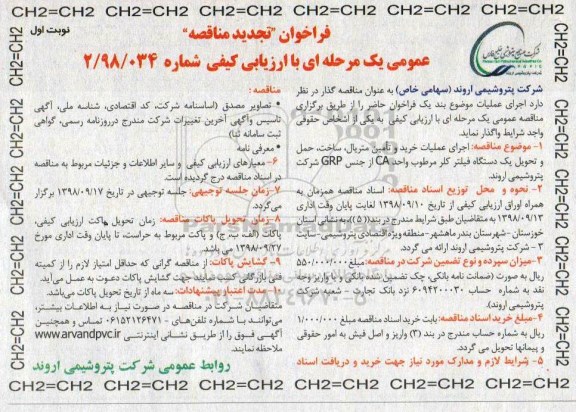 CH2=CH2 CH2=CH2 CH2=CH2 CH2=CH2 CH2=CH2 CH2=CH2 CH2=CH2
نوبت اول
فراخوان "تجدید مناقصه"
عمومی یک مرحله ای با ارزیابی کیفی شماره ۲/۹۸/۰۳۴
شرکت پتروشیمی اروند (سهامی خاص) به عنوان مناقصه گذار در نظر
دارد اجرای عملیات موضوع بند یک فراخوان حاضر را از طریق برگزاری
مناقصه عمومی یک مرحله ای با ارزیابی کیفی به یکی از اشخاص حقوقی
واجد شرایط واگذار نماید.
۱- موضوع مناقصه: اجرای عملیات خرید و تأمین متریال، ساخت، حمل
و تحویل یک دستگاه فیلتر کلر مرطوب واحد CA از جنس GRP شرکت
پتروشیمی اروند.
۲- نحوه و محل توزیع اسناد مناقصه: اسناد مناقصه همزمان به
همراه اوراق ارزیابی کیفی از تاریخ ۱۳۹۸/۰۹/۱۰ لغایت پایان وقت اداری
۱۳۹۸/۰۹/۱۳ به متقاضیان طبق شرایط مندرج در بند (۵)، به نشانی استان
خوزستان- شهرستان بندر ماهشهر- منطقه ویژه اقتصادی پتروشیمی- سایت
۳ - شرکت پتروشیمی اروند ارائه می گردد.
۳- میزان سپرده و نوع تضمین شرکت در مناقصه: مبلغ ۵۵۰/۰۰۰/۰۰۰
ریال به صورت (ضمانت نامه بانکی، چک تضمین شده بانکی و یا واریز وجه
نقد به شماره حساب ۶۰۹۴۲۰۰۰۳۰ نزد بانک تجارت - شعبه شرکت
پتروشیمی اروند).
۴- مبلغ خرید اسناد مناقصه: بابت خرید اسناد مناقصه مبلغ ۱/۰۰۰/۰۰۰
ریال به شماره حساب مندرج در بند (۳) واریز و اصل فیش به امور حقوقی
و پیمانها تحویل می گردد.
۵- شرایط لازم و مدارک مورد نیاز جهت خرید و دریافت اسناد
مناقصه:
• تصاویر مصدق (اساسنامه شرکت، کد اقتصادی، شناسه ملی، آگهی
تاسیس وآگهی آخرین تغییرات شرکت مندرج درروزنامه رسمی، گواهی
ثبت سامانه ثنا)
• معرفی نامه
۶- معیارهای ارزیابی کیفی و سایر اطلاعات و جزئیات مربوط به مناقصه
در اسناد مناقصه درج گردیده است.
۷- زمان جلسه توجیهی: جلسه توجیهی در تاریخ ۱۳۹۸/۰۹/۱۷ برگزار
می گردد.
۸- زمان تحویل پاکات مناقصه: زمان تحویل پاکت ارزیابی کیفی،
پاکات (الف، ب، ج) و پاکت مربوط به حراست، تا پایان وقت اداری مورخ
۱۳۹۸/۰۹/۲۷ می باشد.
۹- گشایش پاکات: از مناقصه گرانی که حداقل امتیاز لازم را از کمیته
فنی بازرگانی کسب نمایند، جهت گشایش پاکات دعوت به عمل می آید.
۱۰- مدت اعتبار پیشنهادات: سه ماه از تاریخ تحویل پاکات می باشد.
متقاضیان شرکت در مناقصه در صورت نیاز به اطلاعات بیشتر،
می توانند با شماره تلفن های - ۰۶۱۵۲۱۲۶۴۷۱ تماس و همچنین
آگهی فوق را از طریق نشانی اینترنتی www.arvandpvc.ir
ملاحظه نمایند.
روابط عمومی شرکت پتروشیمی اروند
CH2=CH2 CH2=CH2 CH2=CH2 CH2=CH2 CH2=CH2 CH2=CH2 CH2=CH2